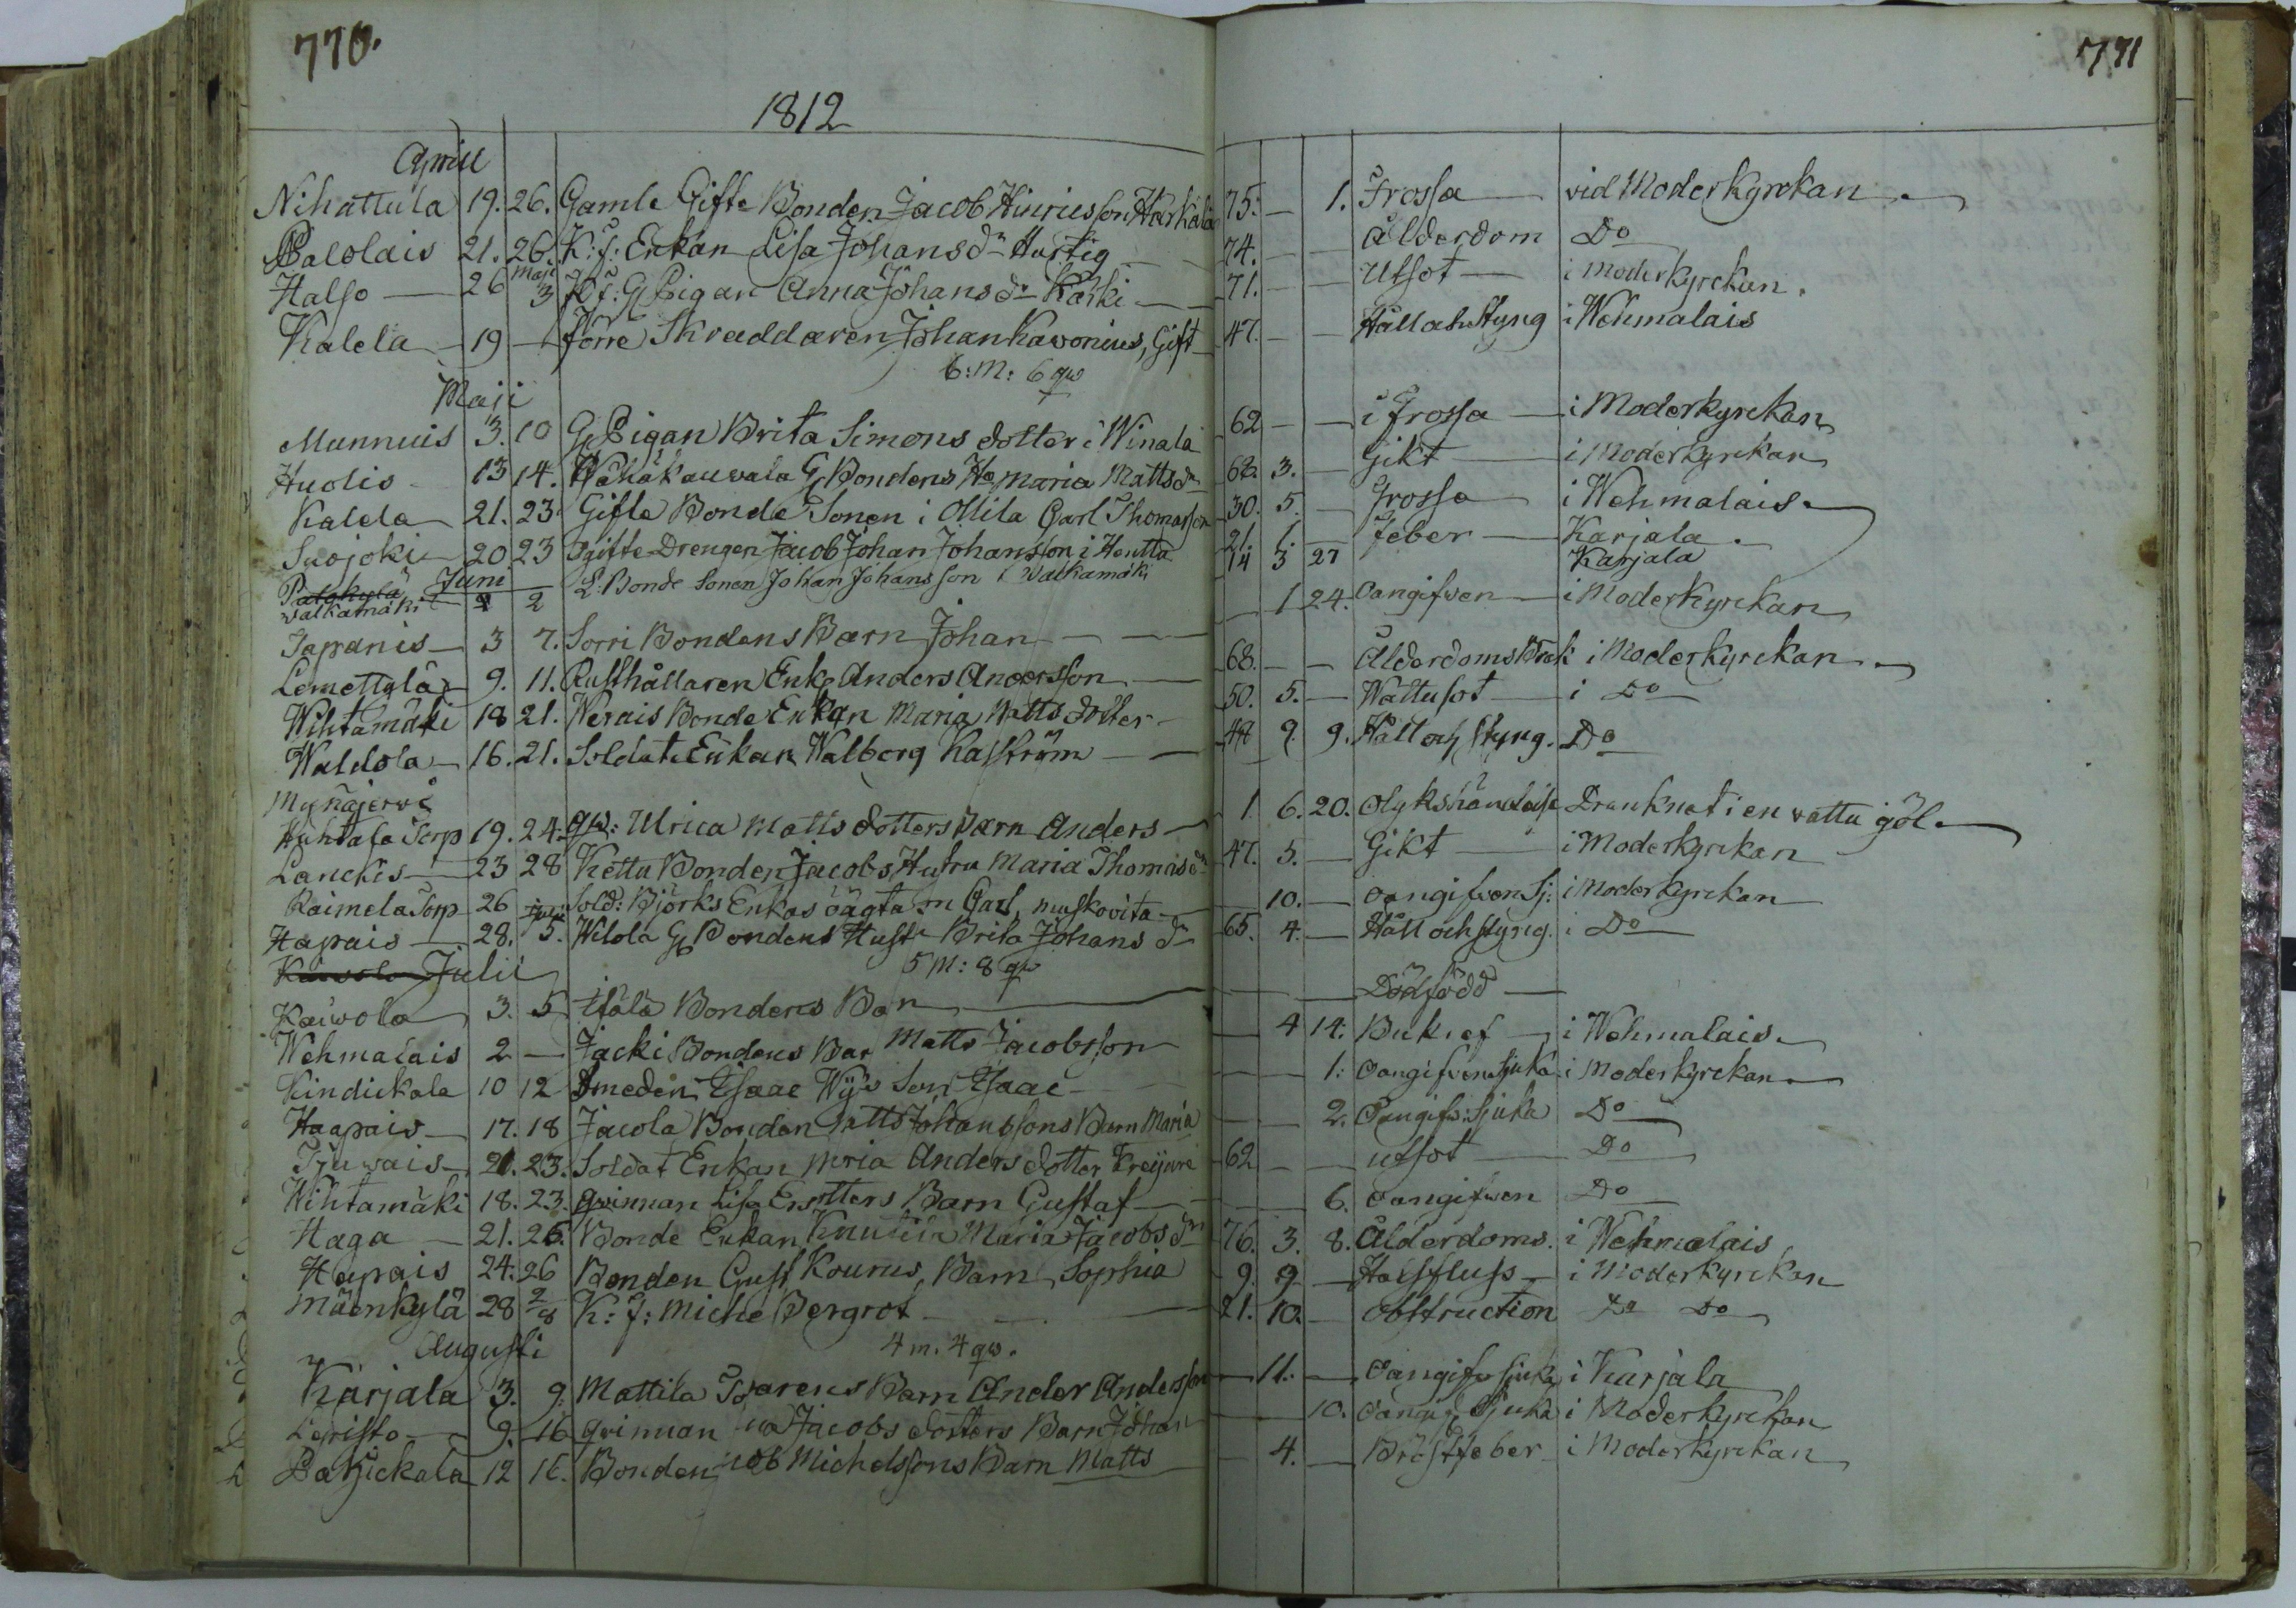 770.
1812
April
Nihattula 19. 26. Gamle Gifte Bonden Jacob Hinricsson Härkälä
Palolais 21. 26. K: f: Enkan Lisa Johans dr Hurtig
Halso 26 Maji 3 K f: G Pigan Anna Johans dr Kärki
Kalela 19 förre Skraddaren Johan Kavonius, Gift
6: M: 6 qw
Maji
Munnuis 3. 10 G Pigan Brita Simons dotter i Winala
Huolis 13 14. Wähäkauvala G Bondens Hu Maria Matts dr
Kalela 21. 23. Gifte Bonde Sonen i Ollila Carl Thomasson
Suojoki 20 23 Ogifte Drengen Jacob Johan Johansson i Hentta
Juni
Palokylä walkamäki 1 2 L: Bonde Sonen Johan Johansson i Walkamäki
Tapanis 3 7. Sorri Bondens Barn Johan
Lemettylä 9. 11. Rusthållaren Enkl Anders Andersson
Wihtamäki 18 21. Nerais Bonde Enkan Maria Matts dotter
Waldola 16. 21. Soldat Enkan Walborg Kaström
Mynäjerwi
Huhtala Torp 19. 24. qw: Ulrica Matts dotters Barn Anders
Lanckis 23 28 Kettu Bonden Jacobs Hustru Maria Thomas dr
Raimela Torp 26 Sold: Björks Enkas oägta Carl, muskovita
Hapais 28. 5. Wilola G Bondens Hust: Brita Johans dr
5 M: 8 qw
Julii
Kaiwola 3. 5 Ifälä Bondens Bar
Wehmalais 2 Jacki Bondens Bar Matts Jacobsson
Kindickala 10 12 Smeden Isaac Wijs Son Isaac
Haapais 17. 18 Jacola Bonden Matts Johanssons Barn Maria
Tjuwais 21. 23. Soldat Enkan Maria Anders dotter Freijare
Wihtamäki 18. 23. qwinnan Lisa Ersdotters Barn Gustaf
Haga 21. 26. Bonde Enkan Knutila Maria Jacobs dr
Hapais 24. 26 Bonden Gust Kourus Barn Sophia
Mäenkylä 28 2/8 K: J: Miche Bergrot
4 m. 4 qw.
Augusti
Karjala 3. 9. Mattila Swarens Barn Ander Andersson
Lepistö 9. 16 qwinnan Jacobs dotters Barn Johan
Patickala 12 16. Bonden Michelssons Barn Matts
771
75. 1. Frossa vid Moderkyrkan
74. Ålderdom Do
71. Utsot i Moderkyrkan.
47. Håll och Styng i Wehmalais
62 i frossa i Moderkyrkan
68. 3. Gikt i Moderkyrkan
30. 5. Frossa i Wehmalais
21. 1. Feber Karjala.
14 3 27 Karjala
1 24. Oangifven i Moderkyrkan
68. Ålderdoms Brek i Moderkyrkan
50. 5. Wattusot i Do
48 9. 9. Håll och styng. Do
1. 6. 20. Olykshändelse Drunknat i en vattu göl
47. 5. Gikt i Moderkyrkan
10. oangifven Sj: i Moderkyrkan
65. 4. Håll och styng. i Do
Dödfödd
4 14. Bukref i Wehmalais
1: Oangifven Sjuka i Moderkyrkan
2. Oangifv: Sjuka Do
62 utsot Do
6. oangifven Do
76. 3. 8. Ålderdoms. i Wehmalais
9. 9 Halsfluss i Moderkyrkan
21. 10. Obstruction Do Do
11. Oangifv Sjuka i Karjala
10. Oangif Sjuka i Moderkyrkan
4. Bröstfeber i Moderkyrkan